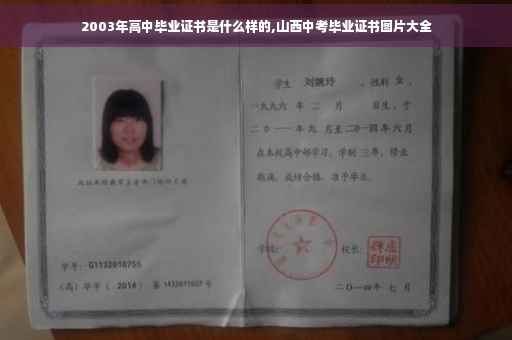 2003年高中毕业证书是什么样的,山西中考毕业证书图片大全
学生 刘婉玲 、性别 女 ,
一九九六 年 二 月 日生，于
二〇一一 年 九 月至 二〇一四 年 六 月
在本校高中部学习，学制 三 年，修业
期满，成绩合格，准予毕业。
学号: G1132010755
(高) 毕字 ( 2014 ) 第 1432011027 号
学校:
校长:
二〇一四年 七 月